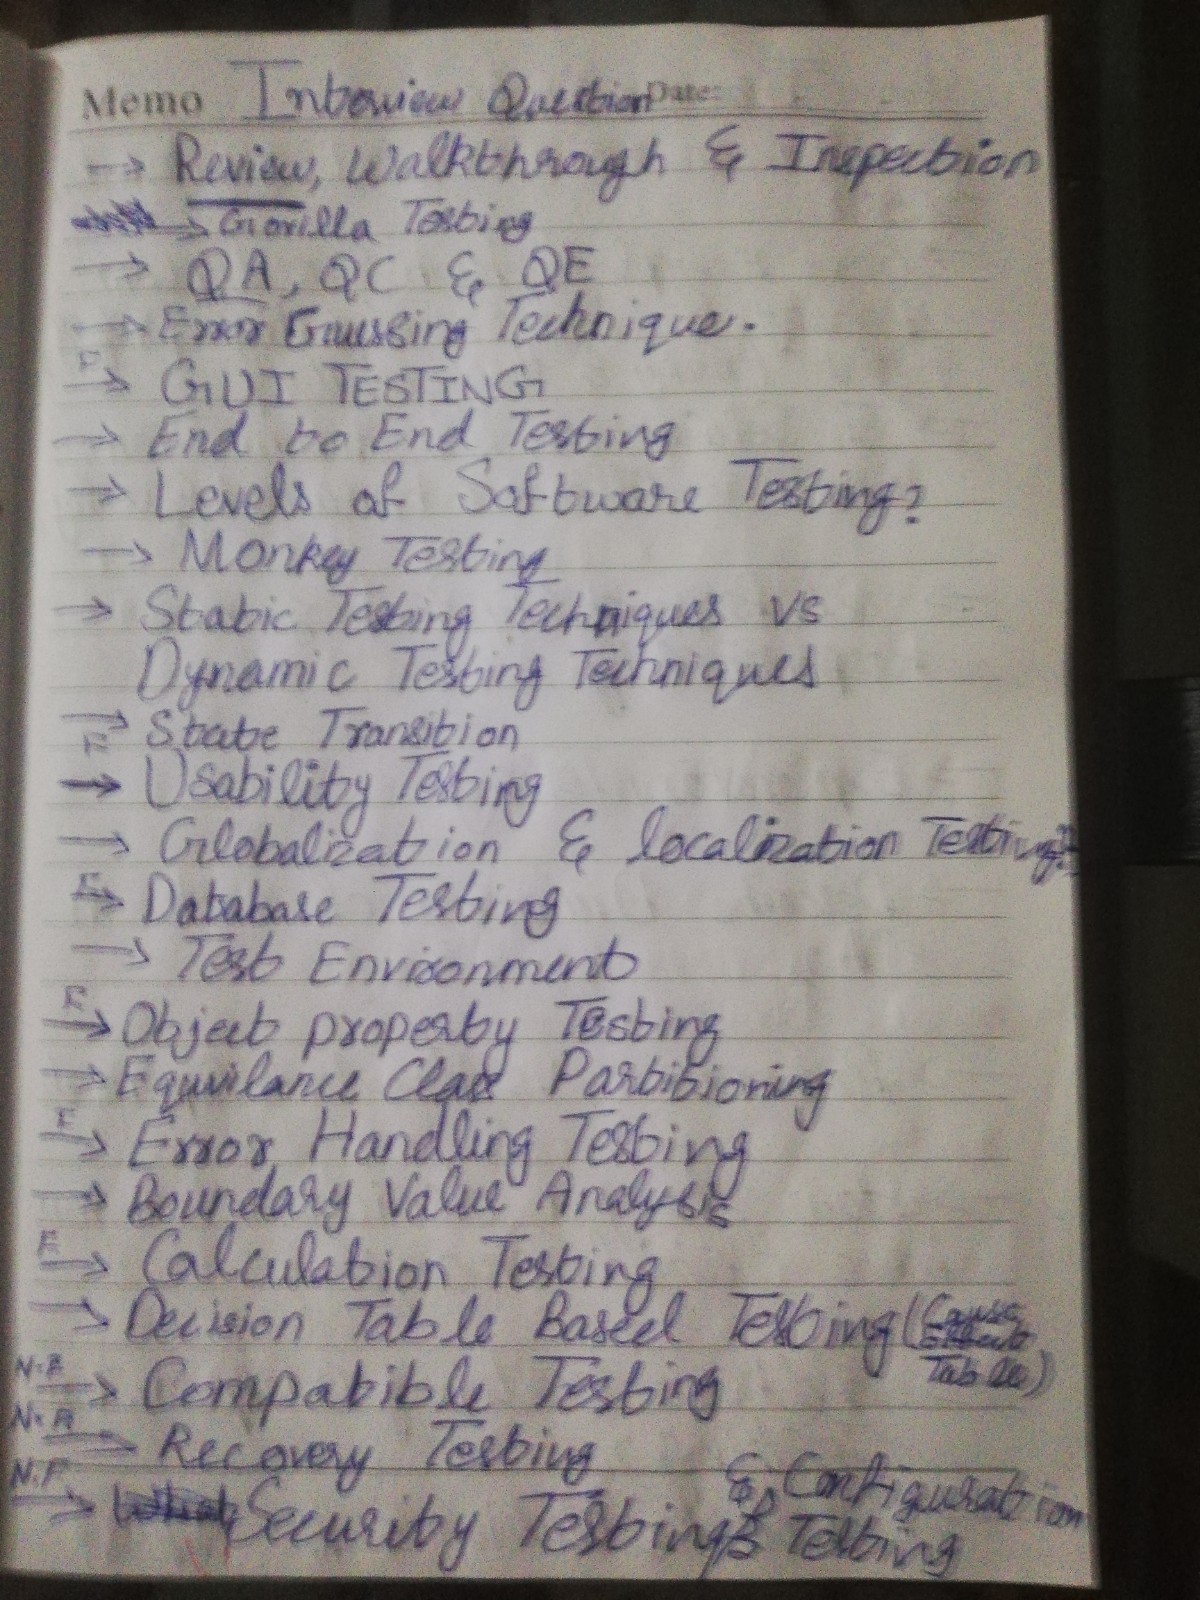 Memo Interview Question Date:
→ Review, Walkthrough & Inspection
→ Gorilla Testing
→ QA, QC & QE
→ Error Guessing Technique.
F → GUI TESTING
→ End to End Testing
→ Levels of Software Testing?
→ Monkey Testing
→ Static Testing Techniques VS
Dynamic Testing Techniques
→ State Transition
F → Usability Testing
→ Globalization & localization Testing?
F → Database Testing
→ Test Environment
F → Object property Testing
→ Equvilance Class Partitioning
F → Error Handling Testing
→ Boundary Value Analysis
F → Calculation Testing
→ Decision Table Based Testing (Cause
effect
Table)
N.F → Compatible Testing
N.F → Recovery Testing
& Configuration
N.F → Security Testing Testing